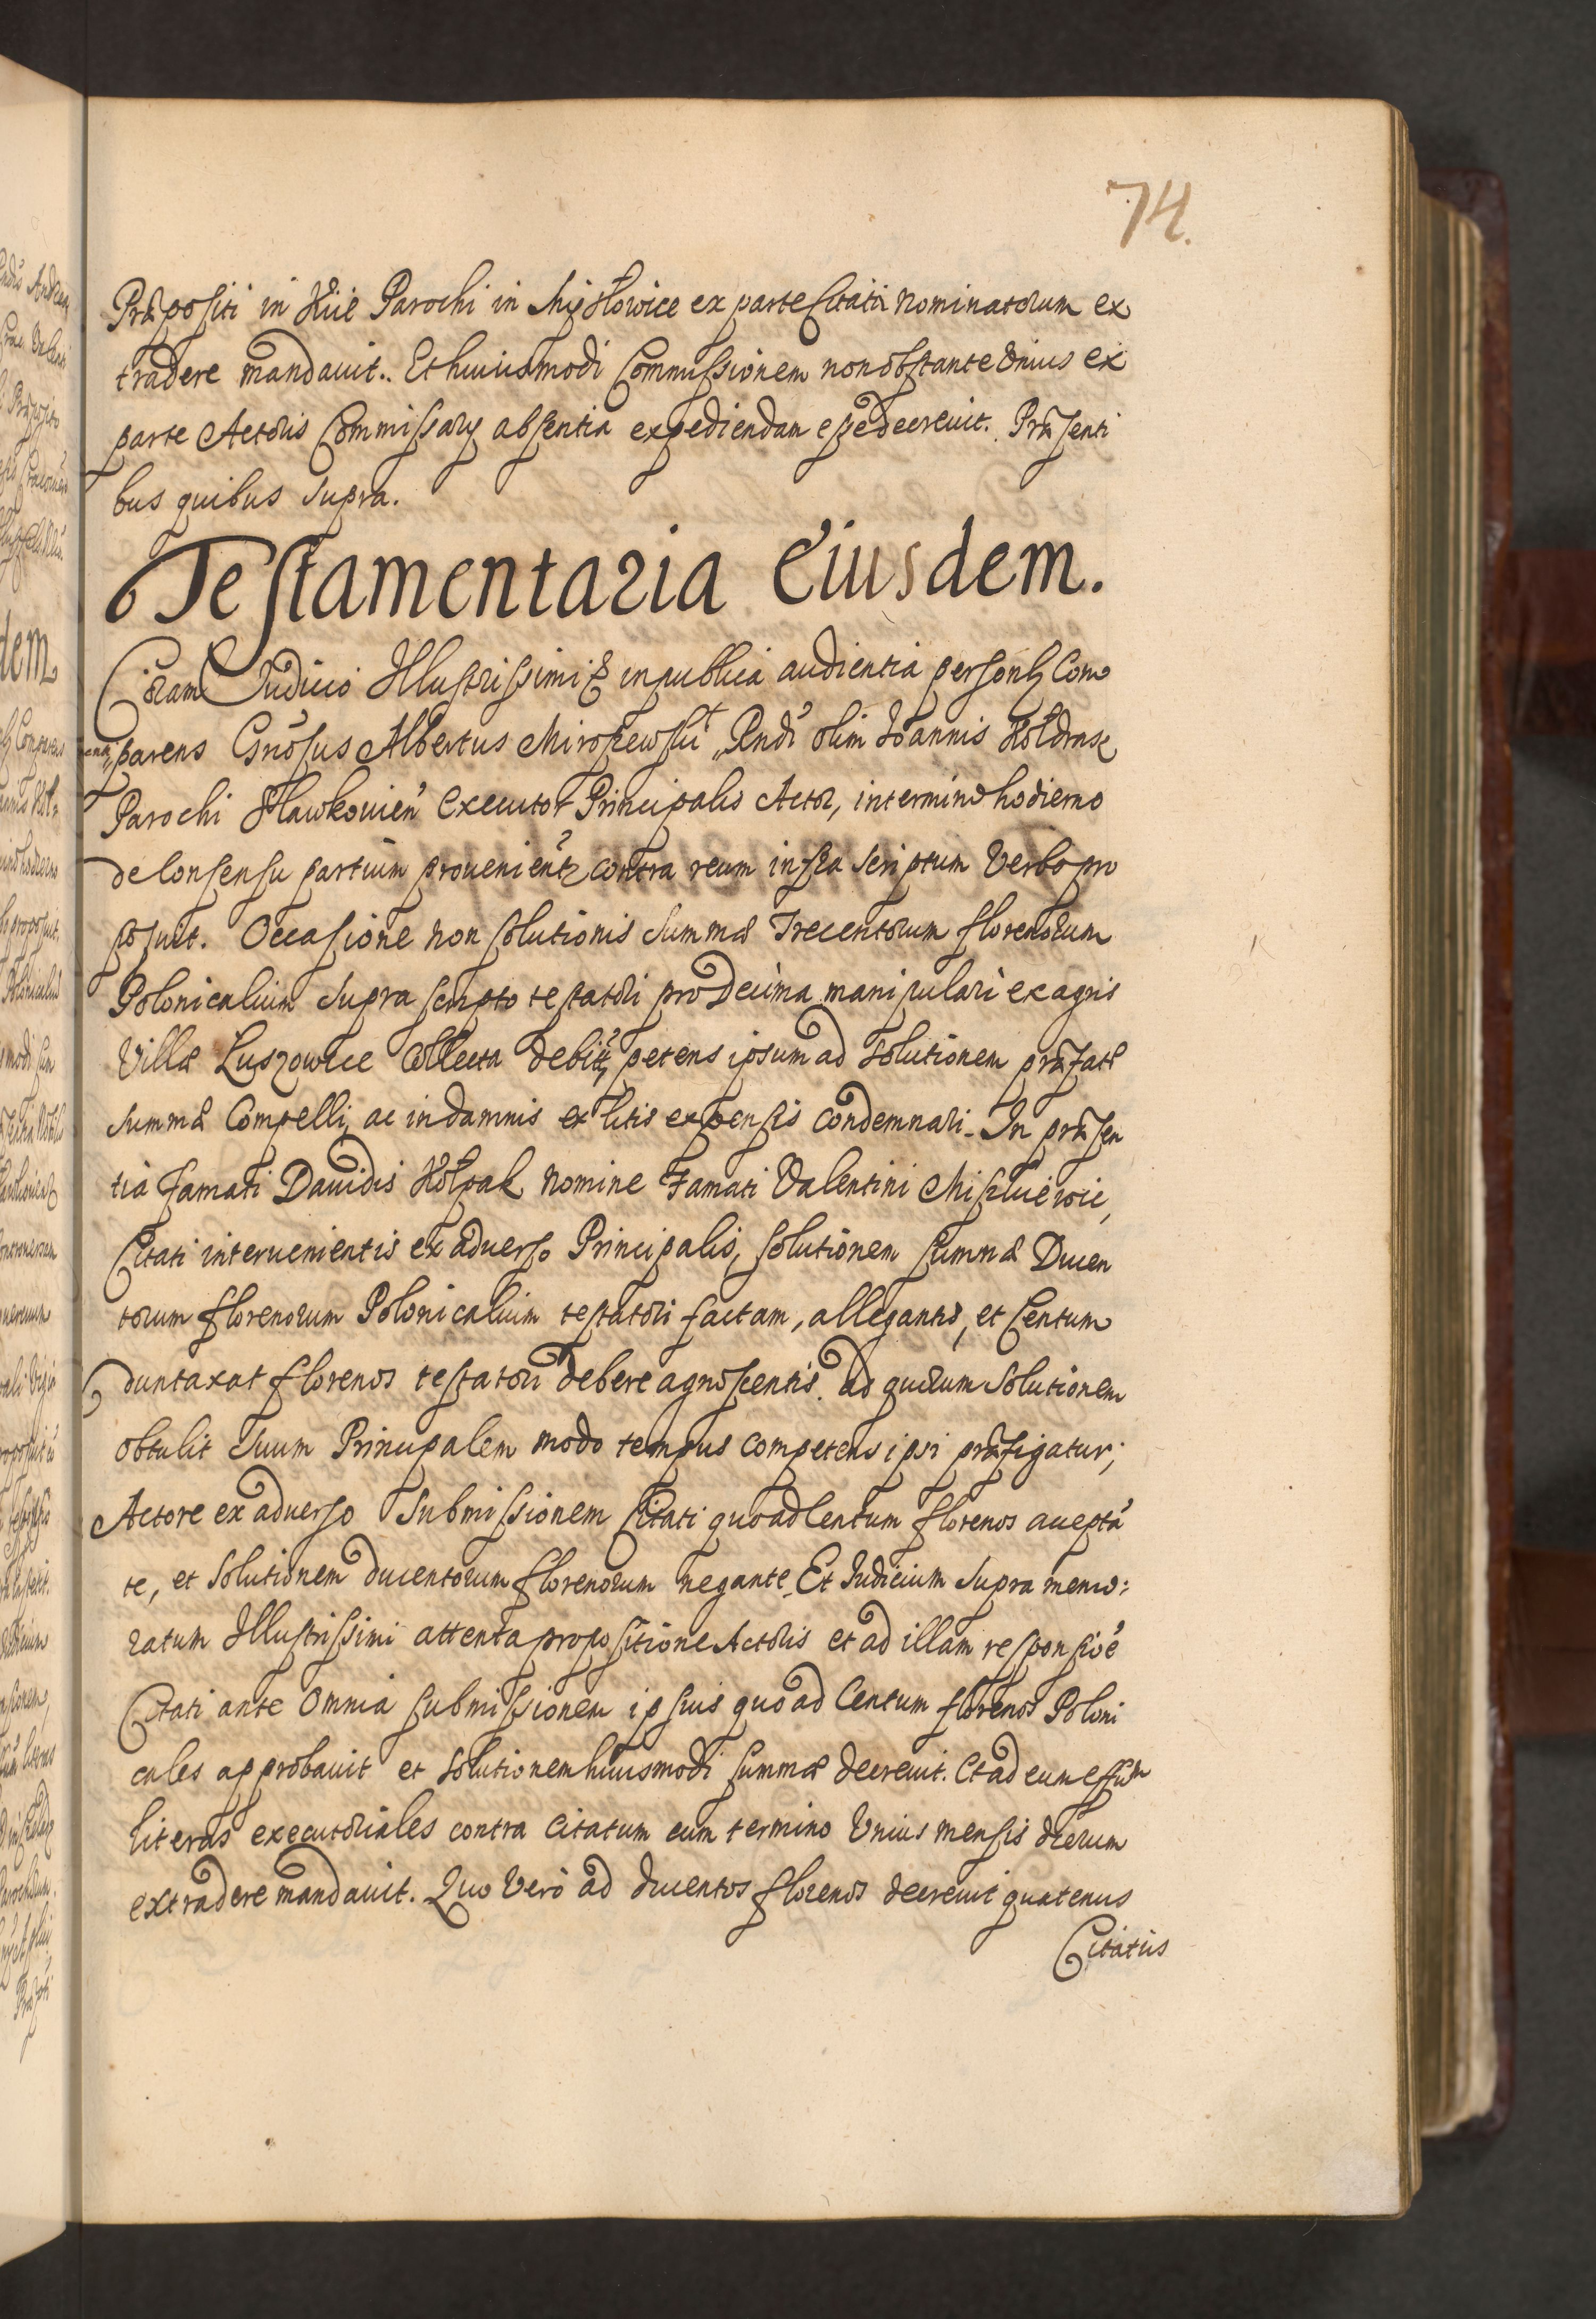 74.
Præpositi in Xiie Parochi in Mysłowice ex parte Citati nominatorum ex
tradere mandavit. Et huiusmodi Commissionem nonobstante Vnius ex
parte Actoris Commissarij absentia expediendam esse decrevit. Præsenti
bus quibus supra.
Testamentaria Eiusdem.
Coram Iudicio Illustrissimi & in publica audientia personlr Com
parens Gnosus Albertus Miroszewski Rndi olim Ioannis Holdrasz
Parochi Sławkovien Executor Principalis Actor, in termino hodierno
de Consensu partium provenient contra reum infra scriptum Verbo pro
posuit. Occasione non solutionis summæ Trecentorum florenorum
Polonicalium supra scripto testatori pro Decima manipulari ex agris
Villæ Luszowice Collecta debit, petens ipsum ad solutionem præfatæ
summæ Compelli, ac in damnis et litis expensis condemnari. In præsen
tia famati Davidis Kołpak nomine Famati Valentini
Citati intervenientis ex adverso Principalis, solutionem summæ Ducen
torum florenorum Polonicalium testatori factam, allegantis, et Centum
duntaxat florenos testatori debere agnoscentis. ad quorum solutionem
obtulit suum Principalem modo tempus competens ipsi præfigatur;
Actore ex adverso Submissionem Citati quoad Centum florenos acceptā
te, et solutionem ducentorum florenorum negante. Et Iudicium supra memo:
ratum Illustrissimi attenta propositione Actoris et ad illam responsioē
Citati ante omnia submissionem ipsius quoad Centum florenos Poloni
cales approbavit et solutionem huiusmodi summæ decrevit. Et ad eum effūm
literas executoriales contra Citatum cum termino Vnius mensis dierum
extradere mandavit. Quo Verò ad ducentos florenos decrevit quatenus
Citatus